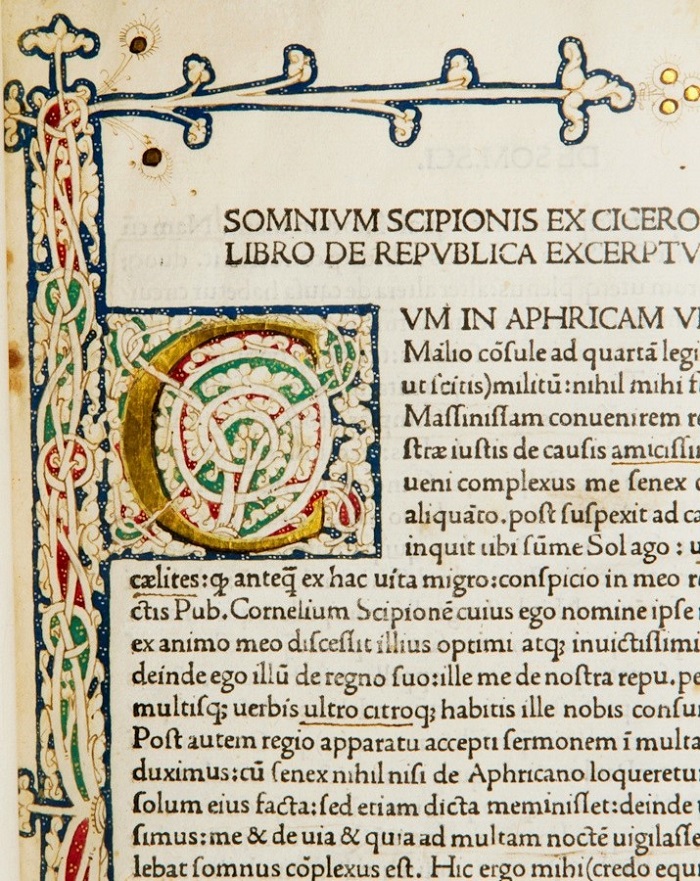 SOMNIVM SCIPIONIS EX CICERO
LIBRO DE REPVBLICA EXCERPTV
CVM IN APHRICAM VE
Mãlio cõsule ad quartã legi
ut ſcitis)militũ:nihil mihi f
Maſſiniſſam conuenirem re
ſtræ iuſtis de cauſis amiciſſim
ueni complexus me ſenex c
aliquãto.poſt ſuſpexit ad ca
inquit tibi ſũme Sol ago : u
cælites:ꝙ̃ anteq̃ ex hac uita migro:conſpicio in meo re
ctis Pub.Cornelium Scipionẽ cuius ego nomine ipſe
ex animo meo diſceſſit illius optimi atqꝫ inuictiſſimi
deinde ego illũ de regno ſuo:ille me de noſtra repu.pe
multiſqꝫ uerbis ultro citroqꝫ habitis ille nobis conſu
Poſt autem regio apparatu accepti ſermonem ĩ multa
duximus:cũ ſenex nihil niſi de Aphricano loqueretu
ſolum eius facta:ſed etiam dicta meminiſſet:deinde u
ſimus:me & de uia & quia ad multam noctẽ uigilaſſe
lebat ſomnus cõplexus eſt. Hic ergo mihi(credo equ